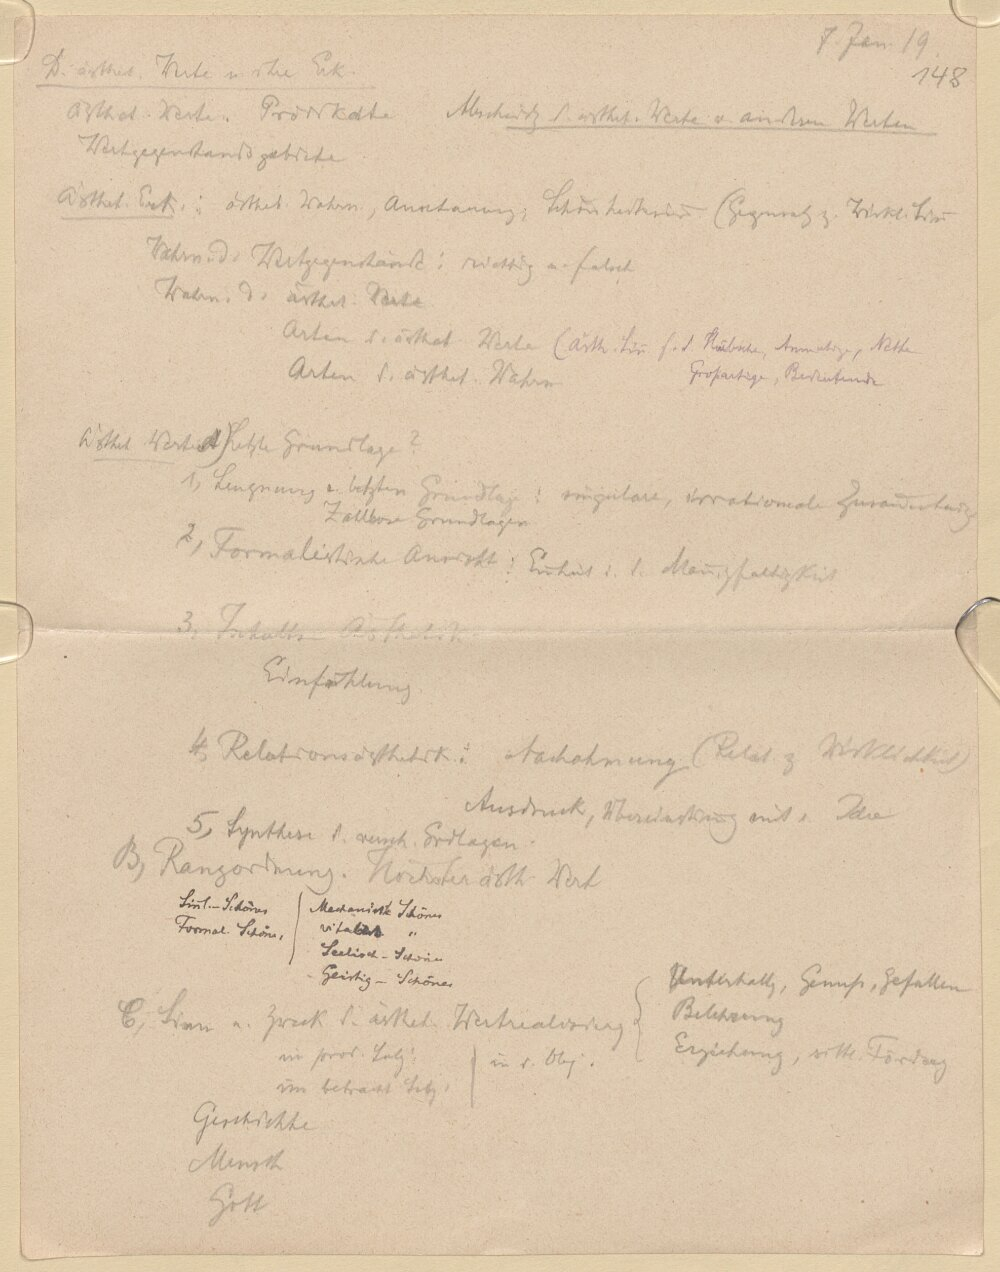 7. Jan. 19.
148
D. ästhet. Werte u. ihre Erk.
ästhet. Werte. Prädikate Abscheidg d. ästhet. Werte v. anderen Werten
Wertgegenstandsgebiete
Ästhet. Erk.: ästhet. Wahrn., Anschauung; Schönheitssinn (Gegensatz z. Wirkl. Sinn
Wahrn. d. Wertgegenstände: richtig u. falsch
Wahrn. d. ästhet. Werte
Arten d. ästhet. Werte (ästh. Sinn f. d. Hübsche, Anmutige, Nette
Großartige, Bedeutende
Arten d. ästhet. Wahrn
Ästhet Werte A) Letzte Grundlage?
1, Leugnung e. letzten Grundlage: singuläre, irrationale
Zahllose Grundlagen
2, Formalistische Ansicht: Einheit i. d. Mannigfaltigkeit
3, Inhalts Ästhetik
Einfühlung
4, Relationsästhetik: Nachahmung (Relat. z. Wirklichkeit)
Ausdruck, Übereinstimmg mit e. Idee
5, Synthese d. versch. Grdlagen.
B, Rangordnung. Höchster ästh. Wert
Sinl.-Schönes Mechanisch Schönes
Formal. Schöne, vital "
Seelisch-Schönes
Geistig-Schönes
C, Sinn u. Zweck d. ästhet. Wertrealisierg Unterhaltg, Genuß, Gefallen
Belehrung
Erziehung, sittl. Förderg
im prod. Subj. in d. Obj.
im betracht Subj.
Geschichte
Mensch
Gott